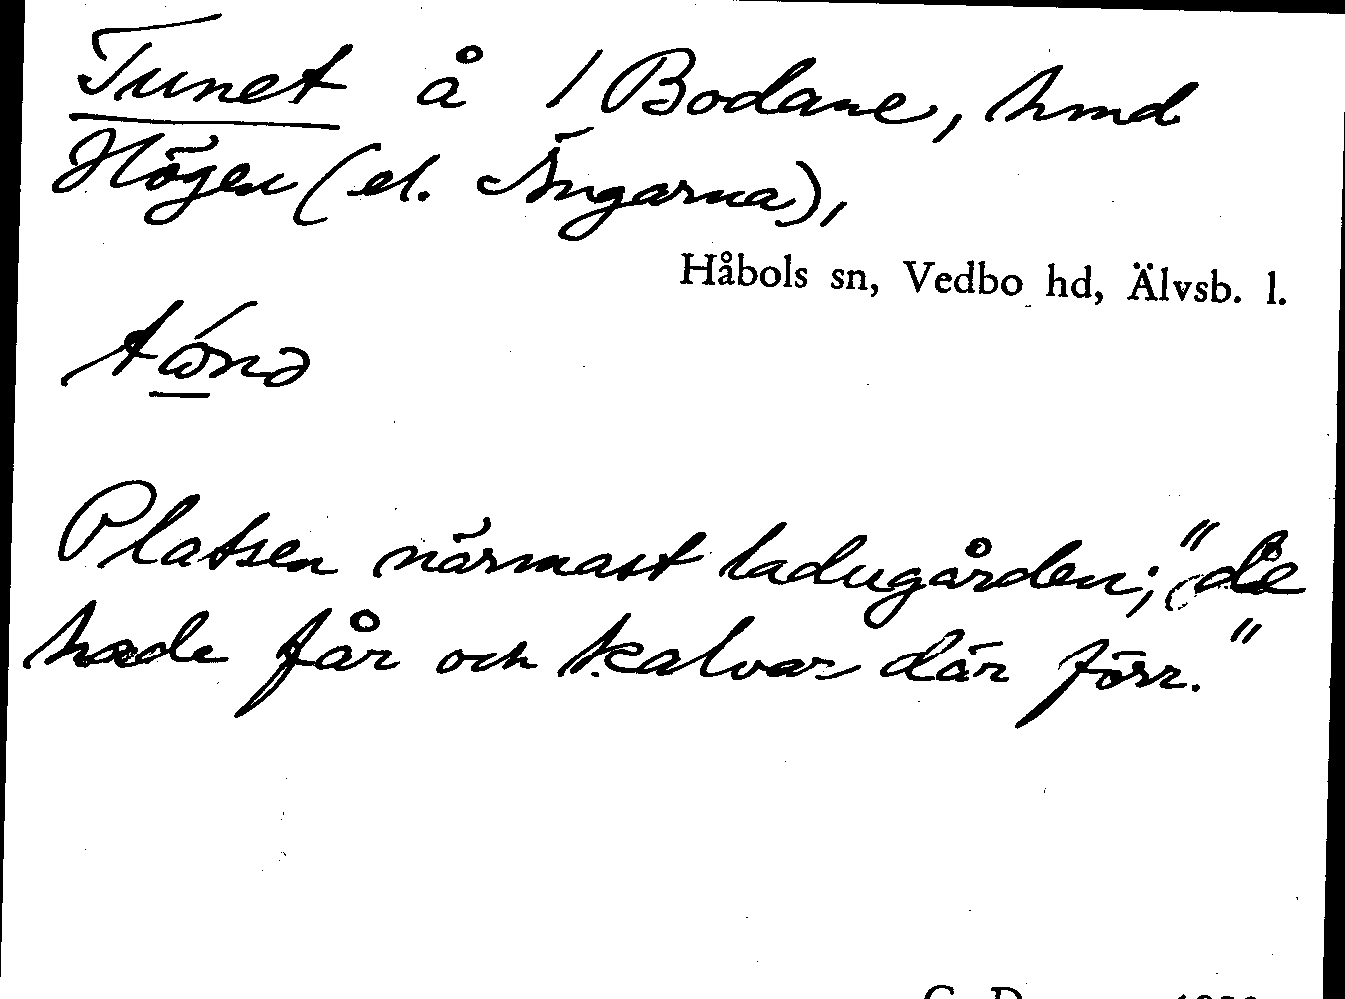 Tunet å 1 Bodane, hmd
Högen (el. Ängarna),
Håbols sn, Vedbo hd, Älvsb. l.
Platsen närmast ladugården; "de
hade får och kalvar där förr."